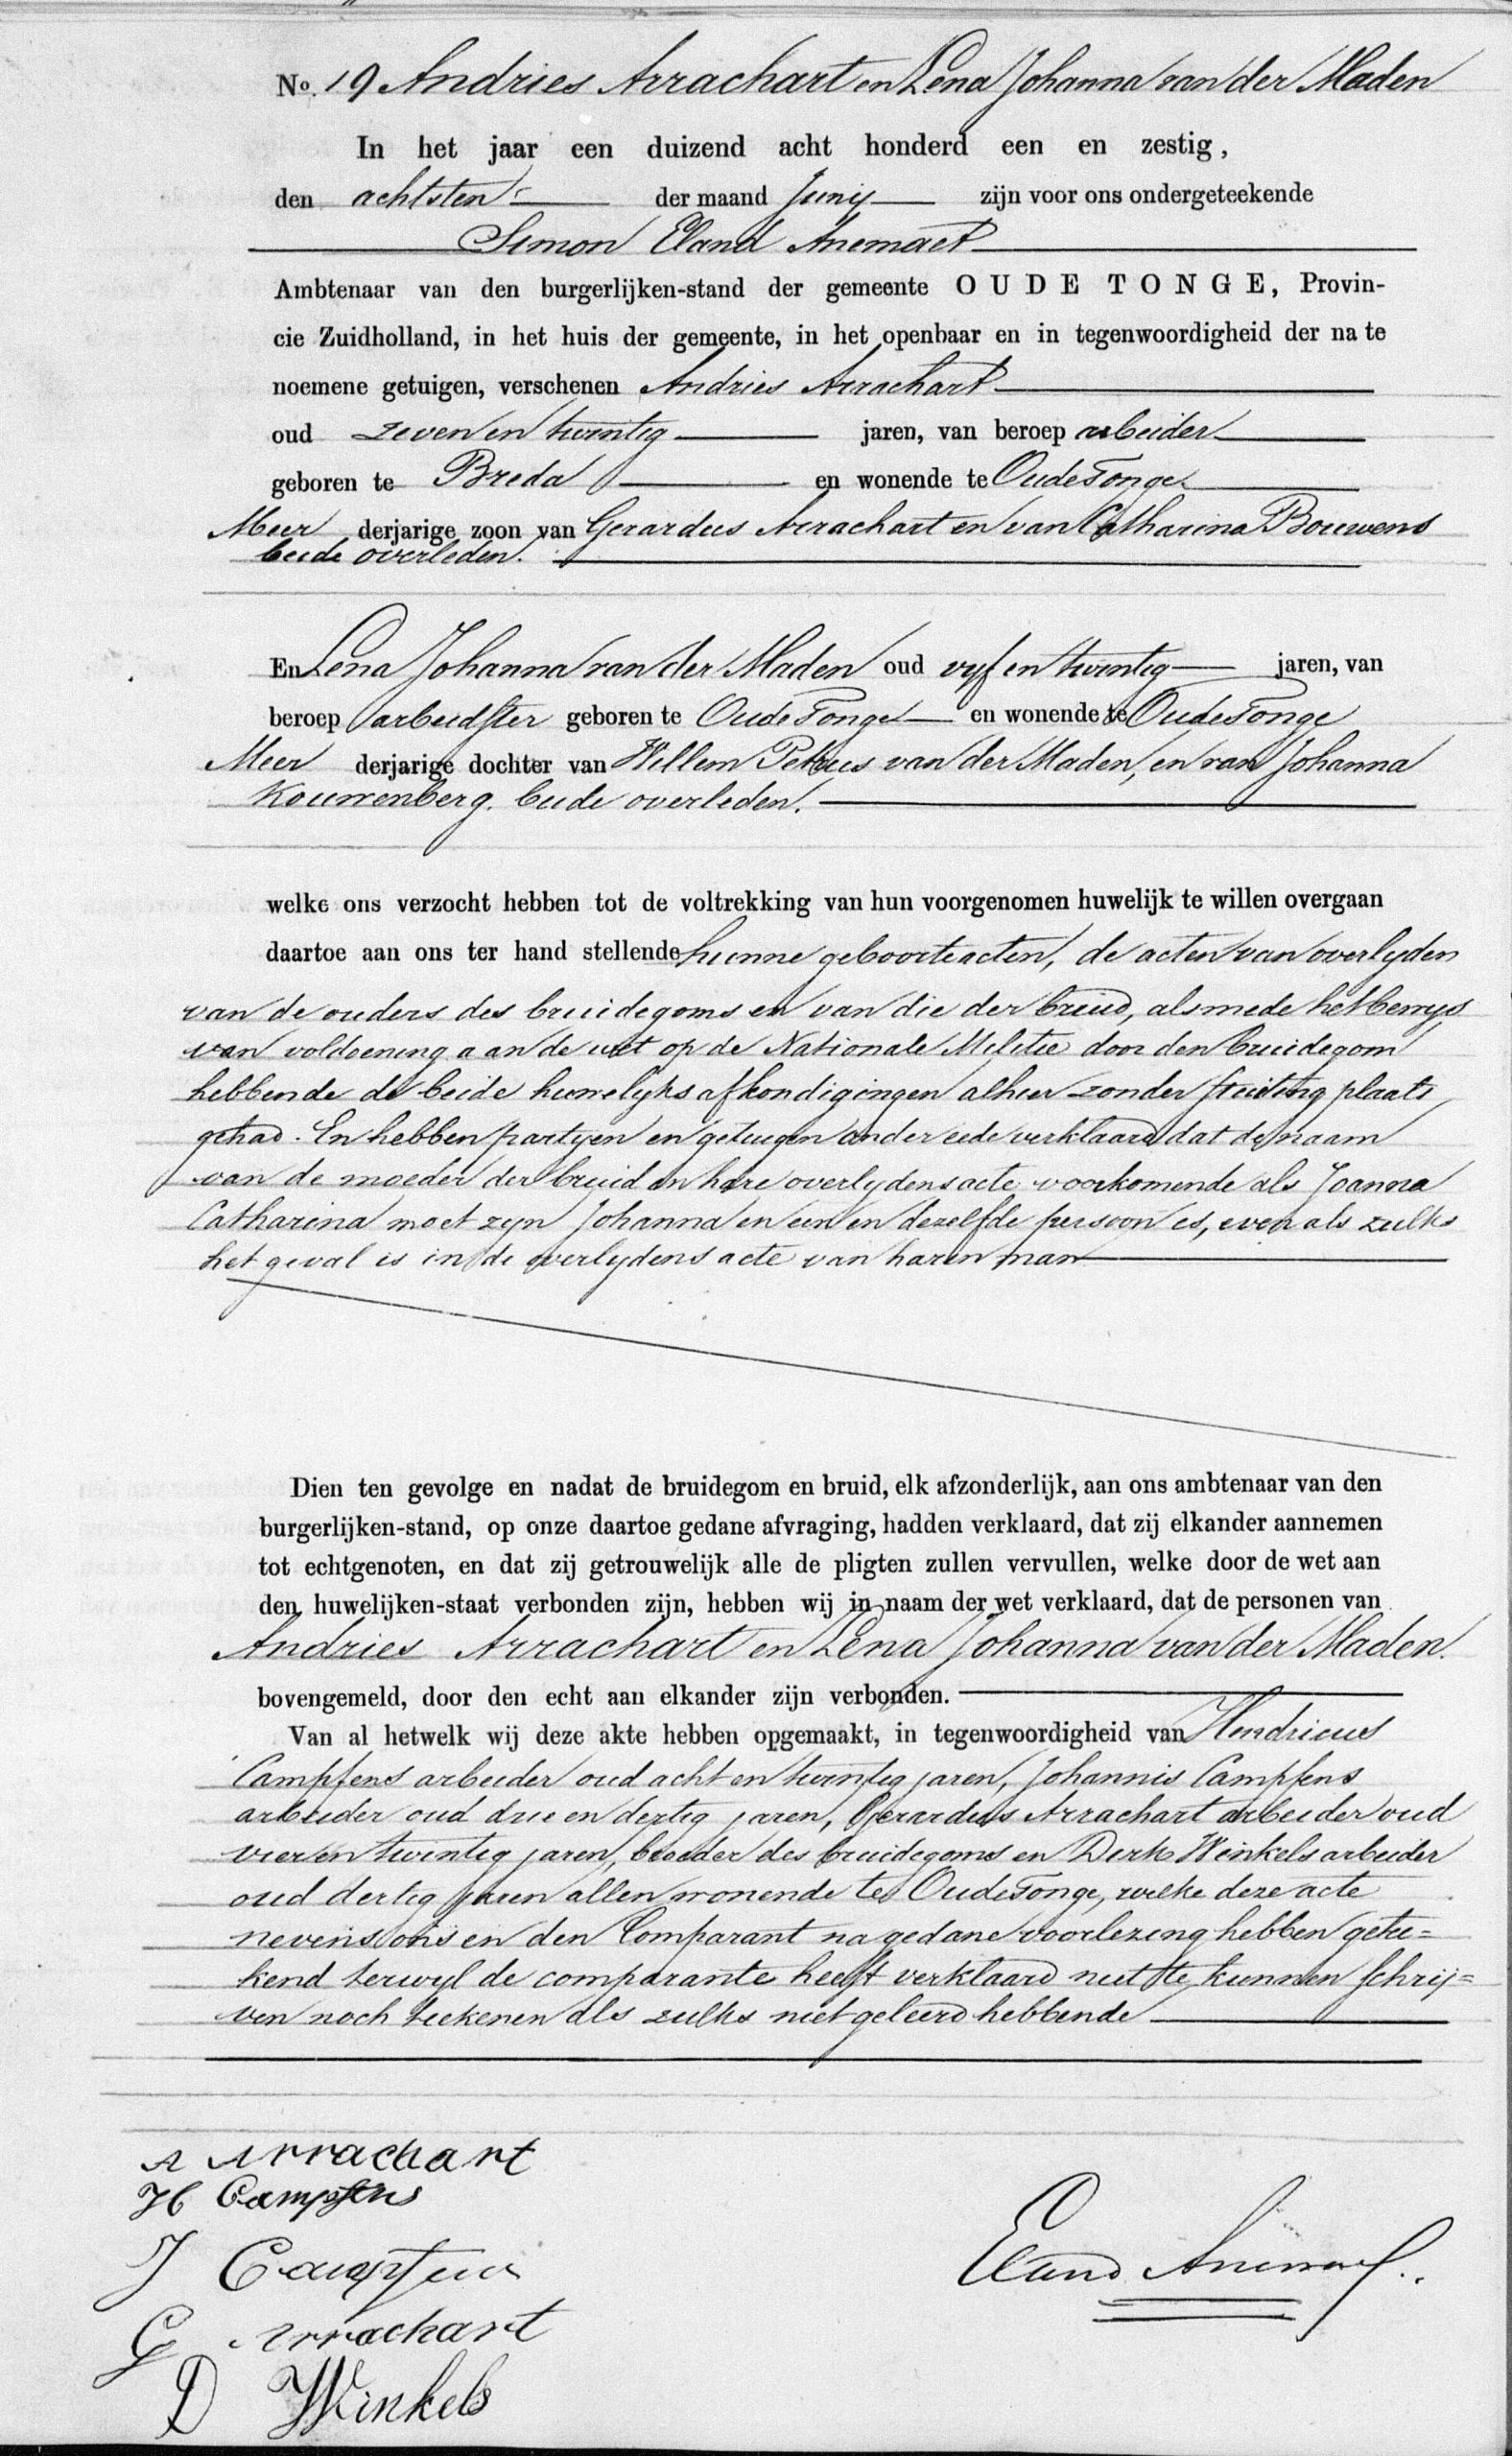 No. 19 Andries Arrachart en Lena Johanna van der Maden
In het jaar een duizend acht honderd een en zestig,
den achtsten der maand Junij zijn voor ons ondergeteekende
Simon Eland Anemaet
Ambtenaar van den burgerlijken-stand der gemeente OUDE TONGE, Provin-
cie Zuidholland, in het huis der gemeente, in het openbaar en in tegenwoordigheid der na te
noemene getuigen, verschenen Andries Arrachart
oud zeven en twintig jaren, van beroep arbeider
geboren te Breda en wonende te Oude Tonge
Meer derjarige zoon van Gerardus Arrachart en van Catharina Bouwens
beide overleden.
En Lena Johanna van der Maden oud vyf en twintig jaren, van
beroep arbeidster geboren te Oude Tonge en wonende te Oude Tonge
Meer derjarige dochter van Willem Petrus van der Maden, en van Johanna
Kouwenberg. beide overleden.
welke ons verzocht hebben tot de voltrekking van hun voorgenomen huwelijk te willen overgaan
daartoe aan ons ter hand stellende hunne geboorteacten, de acten van overlyden
van de ouders des bruidegoms en van die der bruid, alsmede het bewys
van voldoening aan de wet op de Nationale Militie door den bruidegom
hebbende de beide huwelyks afkondigingen alhier zonder stuiting plaats
gehad. En hebben partyen en getuigen onder eede verklaard dat de naam
van de moeder der bruid in hare overlydens acte voorkomende als Joanna
Catharina moet zyn Johanna en een en dezelfde persoon is, even als zulks
het geval is in de overlydens acte van haren man
Dien ten gevolge en nadat de bruidegom en bruid, elk afzonderlijk, aan ons ambtenaar van den
burgerlijken-stand, op onze daartoe gedane afvraging, hadden verklaard, dat zij elkander aannemen
tot echtgenoten, en dat zij getrouwelijk alle de pligten zullen vervullen, welke door de wet aan
den huwelijken-staat verbonden zijn, hebben wij in naam der wet verklaard, dat de personen van
Andries Arrachart en Lena Johanna van der Maden.
bovengemeld, door den echt aan elkander zijn verbonden.
Van al hetwelk wij deze akte hebben opgemaakt, in tegenwoordigheid van Hendricus
Campfens arbeider oud acht en twintig jaren, Johannis Campfens
arbeider oud drie en dertig jaren, Gerardus Arrachart arbeider oud
vier en twintig jaren, broeder des bruidegoms en Dirk Winkels arbeider
oud dertig jaren allen wonende te Oude Tonge, welke deze acte
nevens ons en den Comparant na gedane voorlezing hebben getee=
kend terwyl de comparante heeft verklaard niet te kunnen schrij=
ven noch teekenen als zulks niet geleerd hebbende
A Arrachart
H Campfens
J Campfens
G Arrachart
D Winkels
Eland Anemaet.